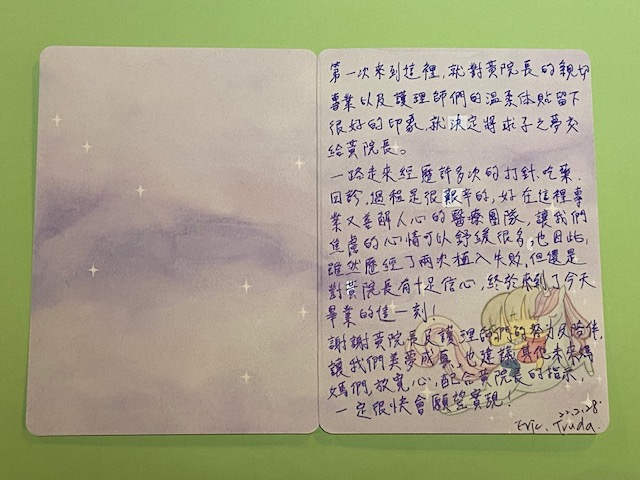 第一次來到這裡，就對黃院長的親切
專業以及護理師們的溫柔体貼留下
很好的印象，就決定將求子之夢交
給黃院長。
一路走來經歷許多次的打針、吃藥、
回診，過程是很艱辛的，好在這裡專
業又善解人心的醫療團隊，讓我們
焦慮的心情可以舒緩很多，也因此，
雖然歷經了兩次植入失敗，但還是
對黃院長有十足信心，終於來到了今天
畢業的這一刻！
謝謝黃院長及護理師們的努力及陪伴，
讓我們美夢成真，也建議其他未來媽
媽們，放寬心，配合黃院長的指示，
一定很快會願望實現！
22.2.28.
Eric. Truda.